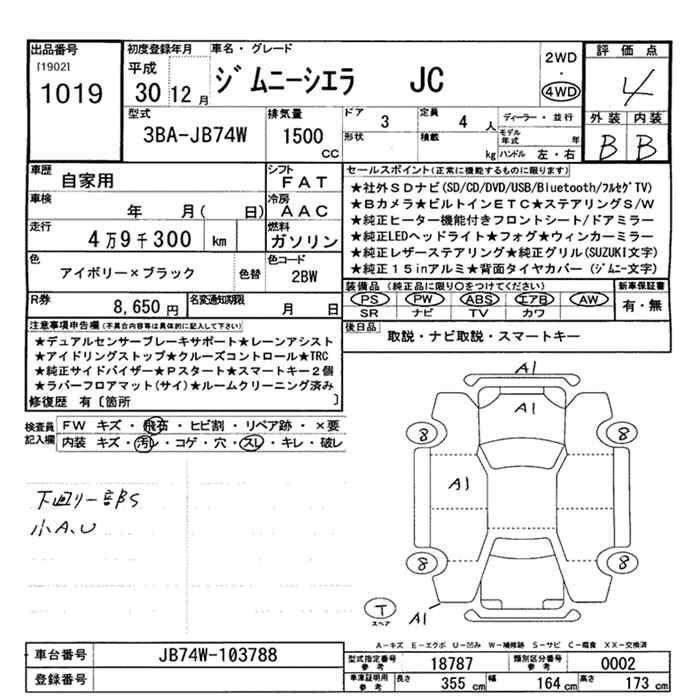 出品番号 初度登録年月 車名・グレード 2WD 評価点
[1902] 平成 ジムニーシエラ JC ・ 4
1019 30 12月 4WD
型式 排気量 ドア 定員 ディーラー・並行 外装 内装
3BA-JB74W 1500 cc 3 4人 モデル年式 年 B B
形状 積載 kg ハンドル 左・右
車歴 自家用 シフト FAT セールスポイント(正常に機能するものに限ります)
車検 年 月( 日) 冷房 AAC ★社外SDナビ(SD/CD/DVD/USB/Bluetooth/フルセグTV)
★Bカメラ★ビルトインETC★ステアリングS/W
走行 4万9千300 km 燃料 ガソリン ★純正ヒーター機能付きフロントシート/ドアミラー
★純正LEDヘッドライト★フォグ★ウィンカーミラー
色 アイボリー×ブラック 色替 色コード 2BW ★純正レザーステアリング★純正グリル(SUZUKI文字)
★純正15inアルミ★背面タイヤカバー(ジムニー文字)
R券 8,650円 名変通知期限 月 日 装備品(純正品に限り○をつけてください) 新車保証書
PS PW ABS エアB AW 有・無
SR ナビ TV カワ
注意事項申告欄(不具合内容等は具体的に記入して下さい) 後日品 取説・ナビ取説・スマートキー
★デュアルセンサーブレーキサポート★レーンアシスト
★アイドリングストップ★クルーズコントロール★TRC
★純正サイドバイザー★Pスタート★スマートキー2個
★ラバーフロアマット(サイ)★ルームクリーニング済み
修復歴 有〔箇所 〕
検査員記入欄 FW キズ・飛石・ヒビ割・リペア跡・×要
内装 キズ・汚レ・コゲ・穴・スレ・キレ・破レ
A1
A1
8 8
A1
下廻り一部S
小A、U
8 8
T
スペア
A1
A-キズ E-エクボ U-凹み W-補修跡 S-サビ C-腐食 XX-交換済
車台番号 JB74W-103788 型式指定番号参考 18787 類別区分番号参考 0002
登録番号 車庫証明用参考 長さ 355 cm 幅 164 cm 高さ 173 cm